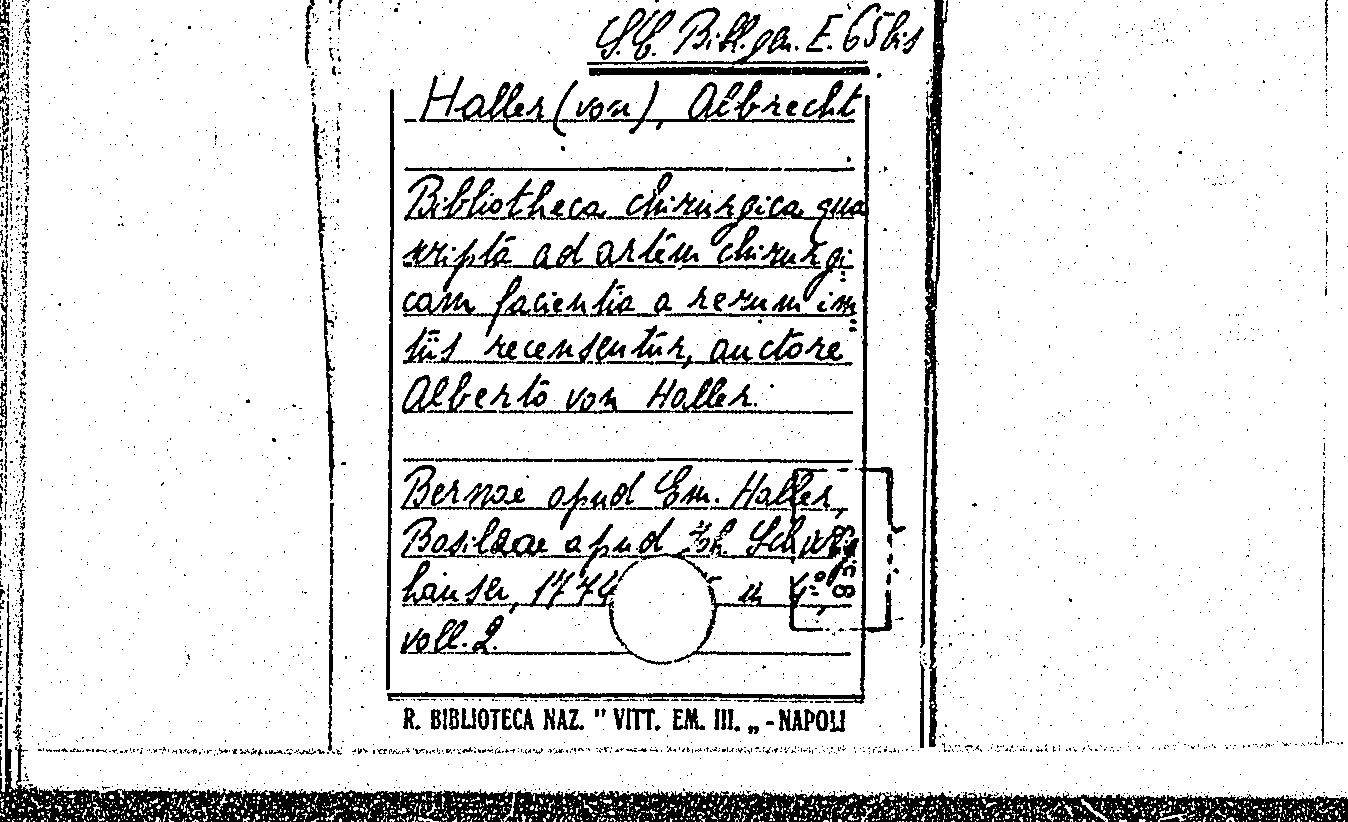 S.C. Bibl. gan. E. 65 bis
Haller (von), Albrecht
Bibliotheca chirurgica qua
scripta ad artem chirurgi
cam facientia a rerum ini
tiis recensentur, auctore
Alberto von Haller.
Bernae apud Em. Haller,
Basileae apud Joh Schweig
hauser, 1774 in 4°,
voll. 2.
R. BIBLIOTECA NAZ. " VITT. EM. III. „ - NAPOLI